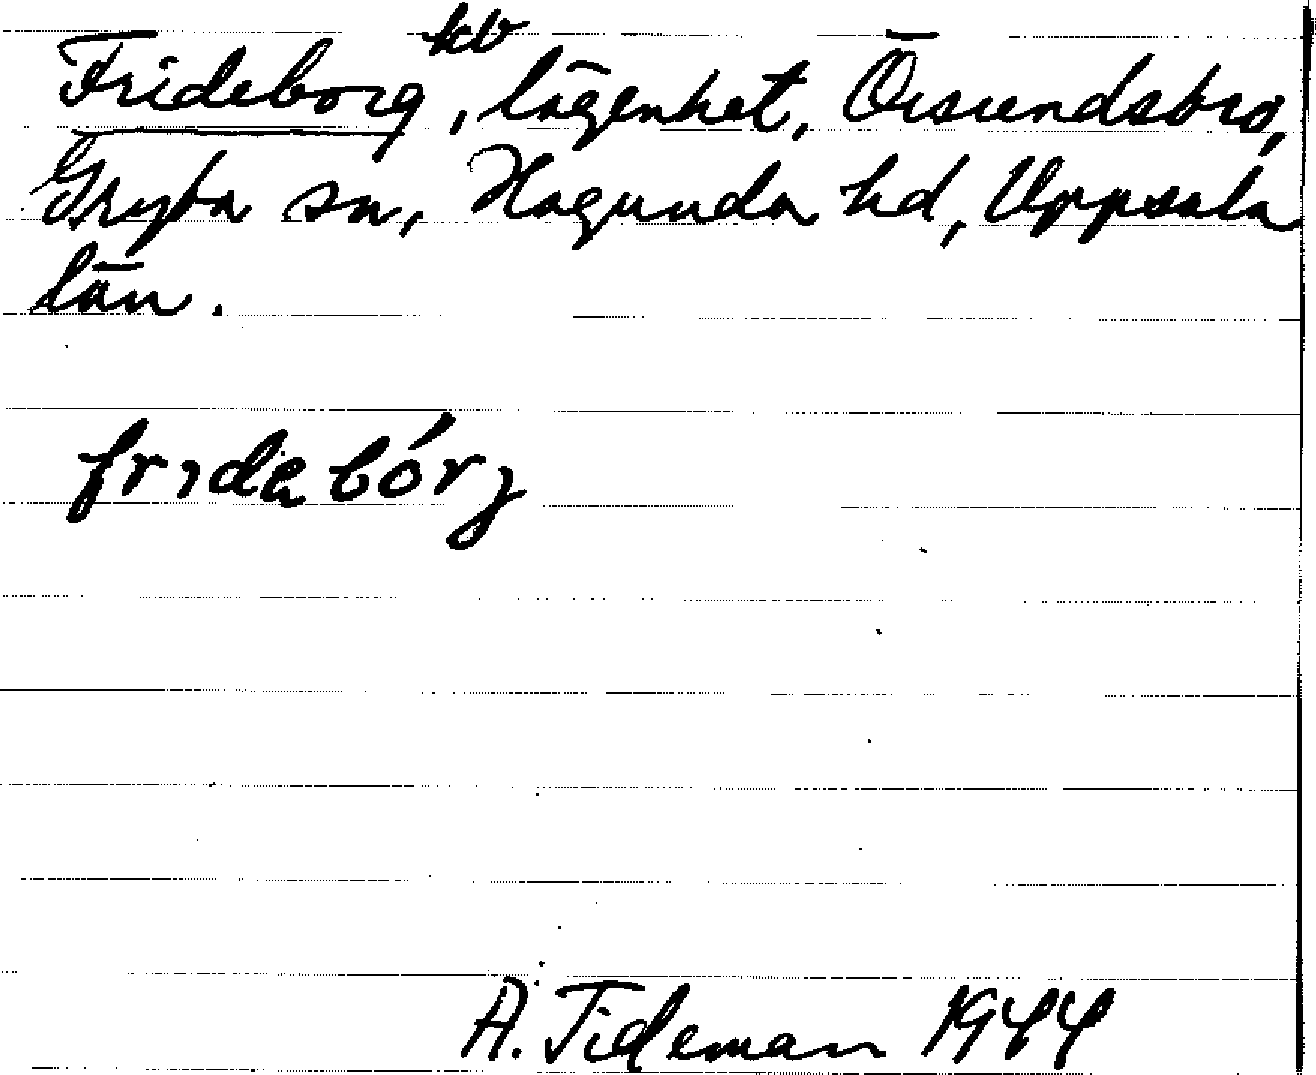 Frideborg kv, lägenhet, Örsundsbro,
Gryta sn, Hagunda hd, Uppsala
län.
fridabórj
A. Tideman 1944